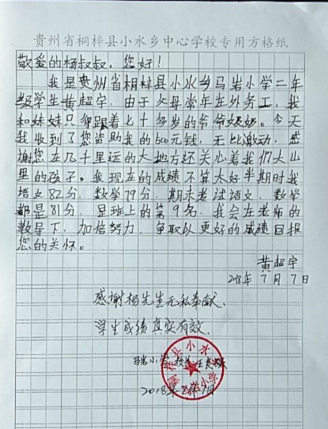 贵州省桐梓县小水乡中心学校专用方格纸
敬爱的杨叔叔，您好！
我是贵州省桐梓县小水乡马岩小学二年
级学生黄超宇，由于父母常年在外务工，我
和妹妹只能跟着七十多岁的爷爷奶奶。今天
我收到了您资助我的500元钱，无比激动，感
谢您在几千里远的大地方还关心着我们大山
里的孩子。我现在的成绩不算太好半期时我
语文82分，数学79分，期末考试语文、数学
都是81分，是班上的第9名，我会在老师的
教导下，加倍努力，争取以更好的成绩回报
您的关怀。
黄超宇
2018年7月7日
感谢杨先生无私奉献，
学生成绩真实有效。
小学
2018年7月7日
桐梓县小水
小学